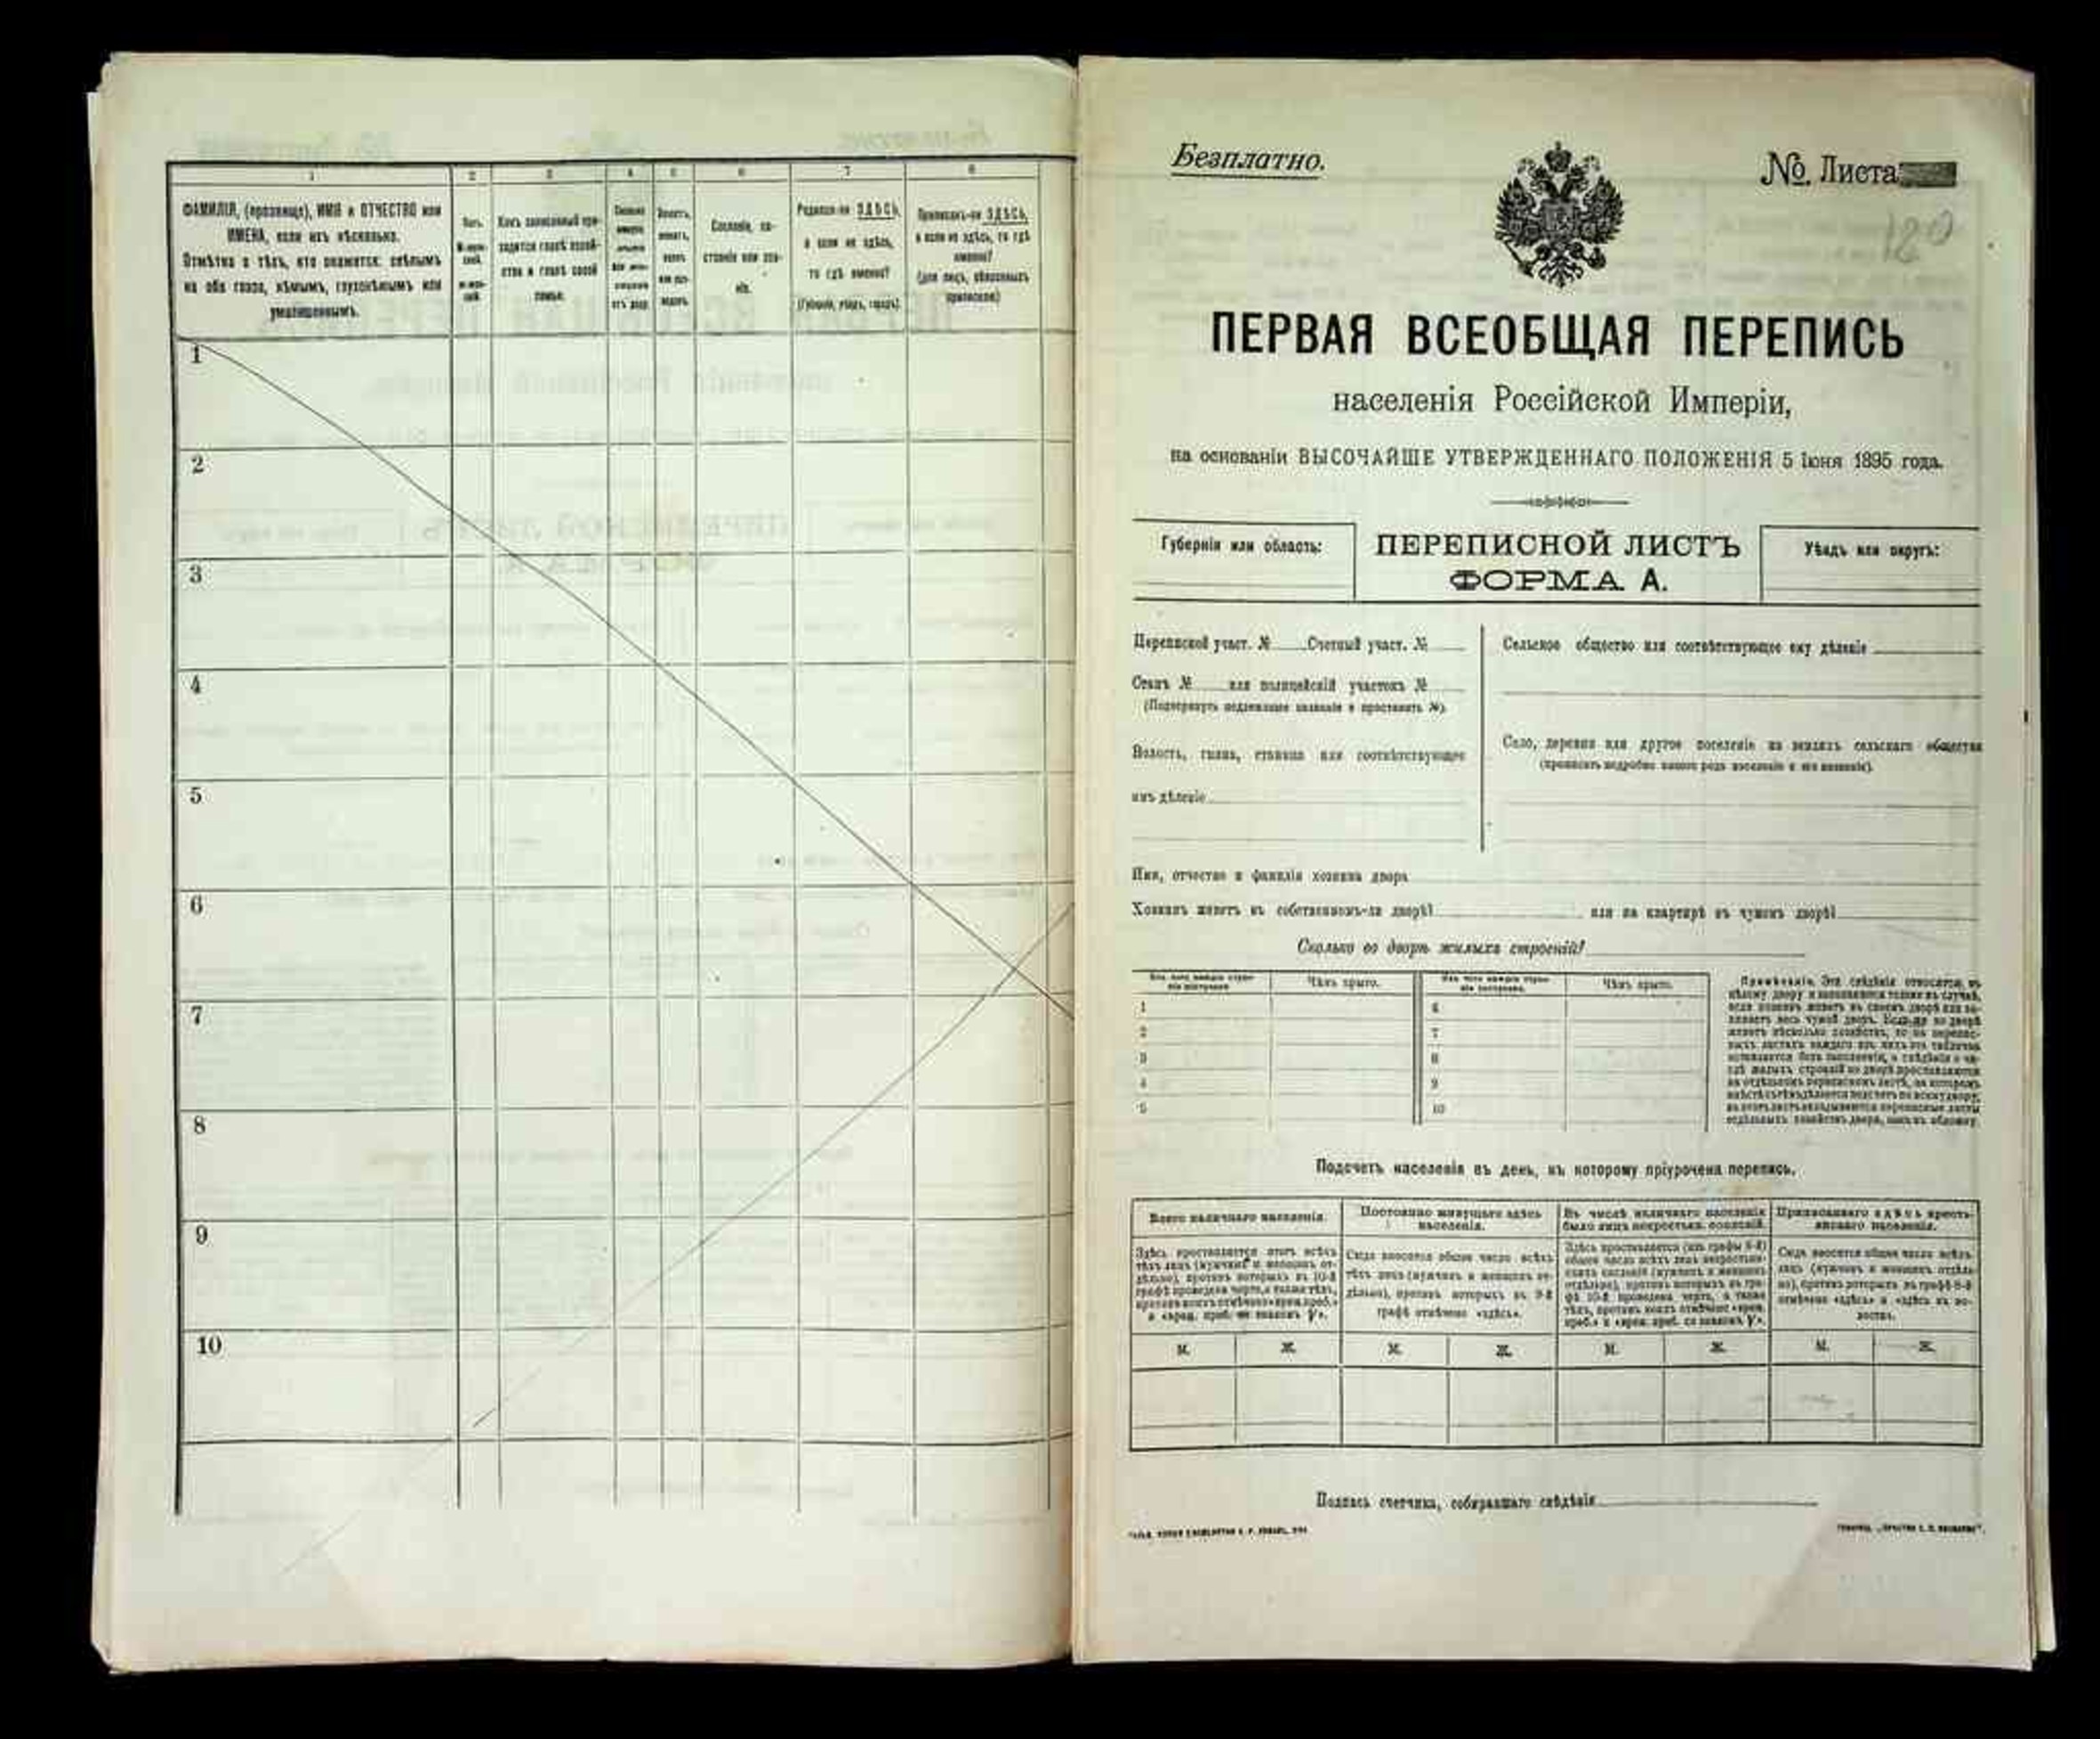 1
2
3
4
5
6
7
8
ФАМИЛІЯ, (прозвище), ИМЯ и ОТЧЕСТВО или
ИМЕНА, если ихъ нѣсколько.
Отмѣтка о тѣхъ, кто окажется: слѣпымъ
на оба глаза, нѣмымъ, глухонѣмымъ или
умалишеннымъ.
Полъ.
Какъ записанный при-
ходится главѣ хозяй-
ства и главѣ своей
семьи.
Сословіе, со-
стояніе или зва-
ніе.
Родился-ли ЗДѢСЬ,
а если не здѣсь,
то гдѣ именно?
(Губернія, уѣздъ, городъ)
Приписанъ-ли ЗДѢСЬ,
а если не здѣсь, то гдѣ
именно?
(для лицъ, обязанныхъ
припискою)
1
2
3
4
5
6
7
8
9
10
Безплатно.
№ Листа
180
ПЕРВАЯ ВСЕОБЩАЯ ПЕРЕПИСЬ
населенія Россійской Имперіи,
на основаніи ВЫСОЧАЙШЕ УТВЕРЖДЕННАГО ПОЛОЖЕНІЯ 5 Іюня 1895 года.
Губернія или область:
ПЕРЕПИСНОЙ ЛИСТЪ
ФОРМА А.
Уѣздъ или округъ:
Переписной участ. № Счетный участ. №
Станъ № или полицейскій участокъ №
(Подчеркнуть надлежащее названіе и проставить №).
Волость, гмина, станица или соотвѣтствующее
имъ дѣленіе
Сельское общество или соотвѣтствующее ему дѣленіе
Село, деревня или другое поселеніе на земляхъ сельскаго общества
(прописать подробно какого рода поселеніе и его названіе).
Имя, отчество и фамилія хозяина двора
Хозяинъ живетъ въ собственномъ-ли дворѣ? или на квартирѣ въ чужомъ дворѣ?
Сколько во дворѣ жилыхъ строеній?
Изъ чего каждое строе-
ніе построено
Чѣмъ крыто.
Изъ чего каждое строе-
ніе построено.
Чѣмъ крыто.
1
2
3
4
5
6
7
8
9
10
Примѣчаніе. Эти свѣдѣнія относятся къ
цѣлому двору и заполняются только въ случаѣ,
если хозяинъ живетъ въ своемъ дворѣ или за-
нимаетъ весь чужой дворъ. Если же во дворѣ
живетъ нѣсколько хозяйствъ, то на перепис-
ныхъ листахъ каждаго изъ нихъ эта табличка
оставляется безъ заполненія, а свѣдѣнія о чи-
слѣ жилыхъ строеній во дворѣ проставляются
на отдѣльномъ переписномъ листѣ, на которомъ
вмѣстѣ съ тѣмъ дѣлается подсчетъ по всему двору;
въ этотъ листъ вкладываются переписные листы
отдѣльныхъ хозяйствъ двора, какъ въ обложку.
Подсчетъ населенія въ день, къ которому пріурочена перепись.
Всего наличнаго населенія.
Постоянно живущаго здѣсь
населенія.
Въ числѣ наличнаго населенія
было лицъ некрестьян. сословій.
Приписаннаго здѣсь кресть-
янскаго населенія.
Здѣсь проставляется итогъ всѣхъ
тѣхъ лицъ (мужчинъ и женщинъ от-
дѣльно), противъ которыхъ въ 10-й
графѣ проведена черта, а также тѣхъ,
противъ коихъ отмѣчено «врем. преб.»
и «врем. преб. со знакомъ V».
Сюда вносится общее число всѣхъ
тѣхъ лицъ (мужчинъ и женщинъ от-
дѣльно), противъ которыхъ въ 9-й
графѣ отмѣчено «здѣсь».
Здѣсь проставляется (изъ графы 6-й)
общее число всѣхъ лицъ некрестьян-
скихъ сословій (мужчинъ и женщинъ
отдѣльно), противъ которыхъ въ гра-
фѣ 10-й проведена черта, а также
тѣхъ, противъ коихъ отмѣчено «врем.
преб.» и «врем. преб. со знакомъ V».
Сюда вносится общее число всѣхъ
лицъ (мужчинъ и женщинъ отдѣль-
но), противъ которыхъ въ графѣ 8-й
отмѣчено «здѣсь» и «здѣсь въ во-
лости».
М.
Ж.
М.
Ж.
М.
Ж.
М.
Ж.
Подпись счетчика, собиравшаго свѣдѣнія